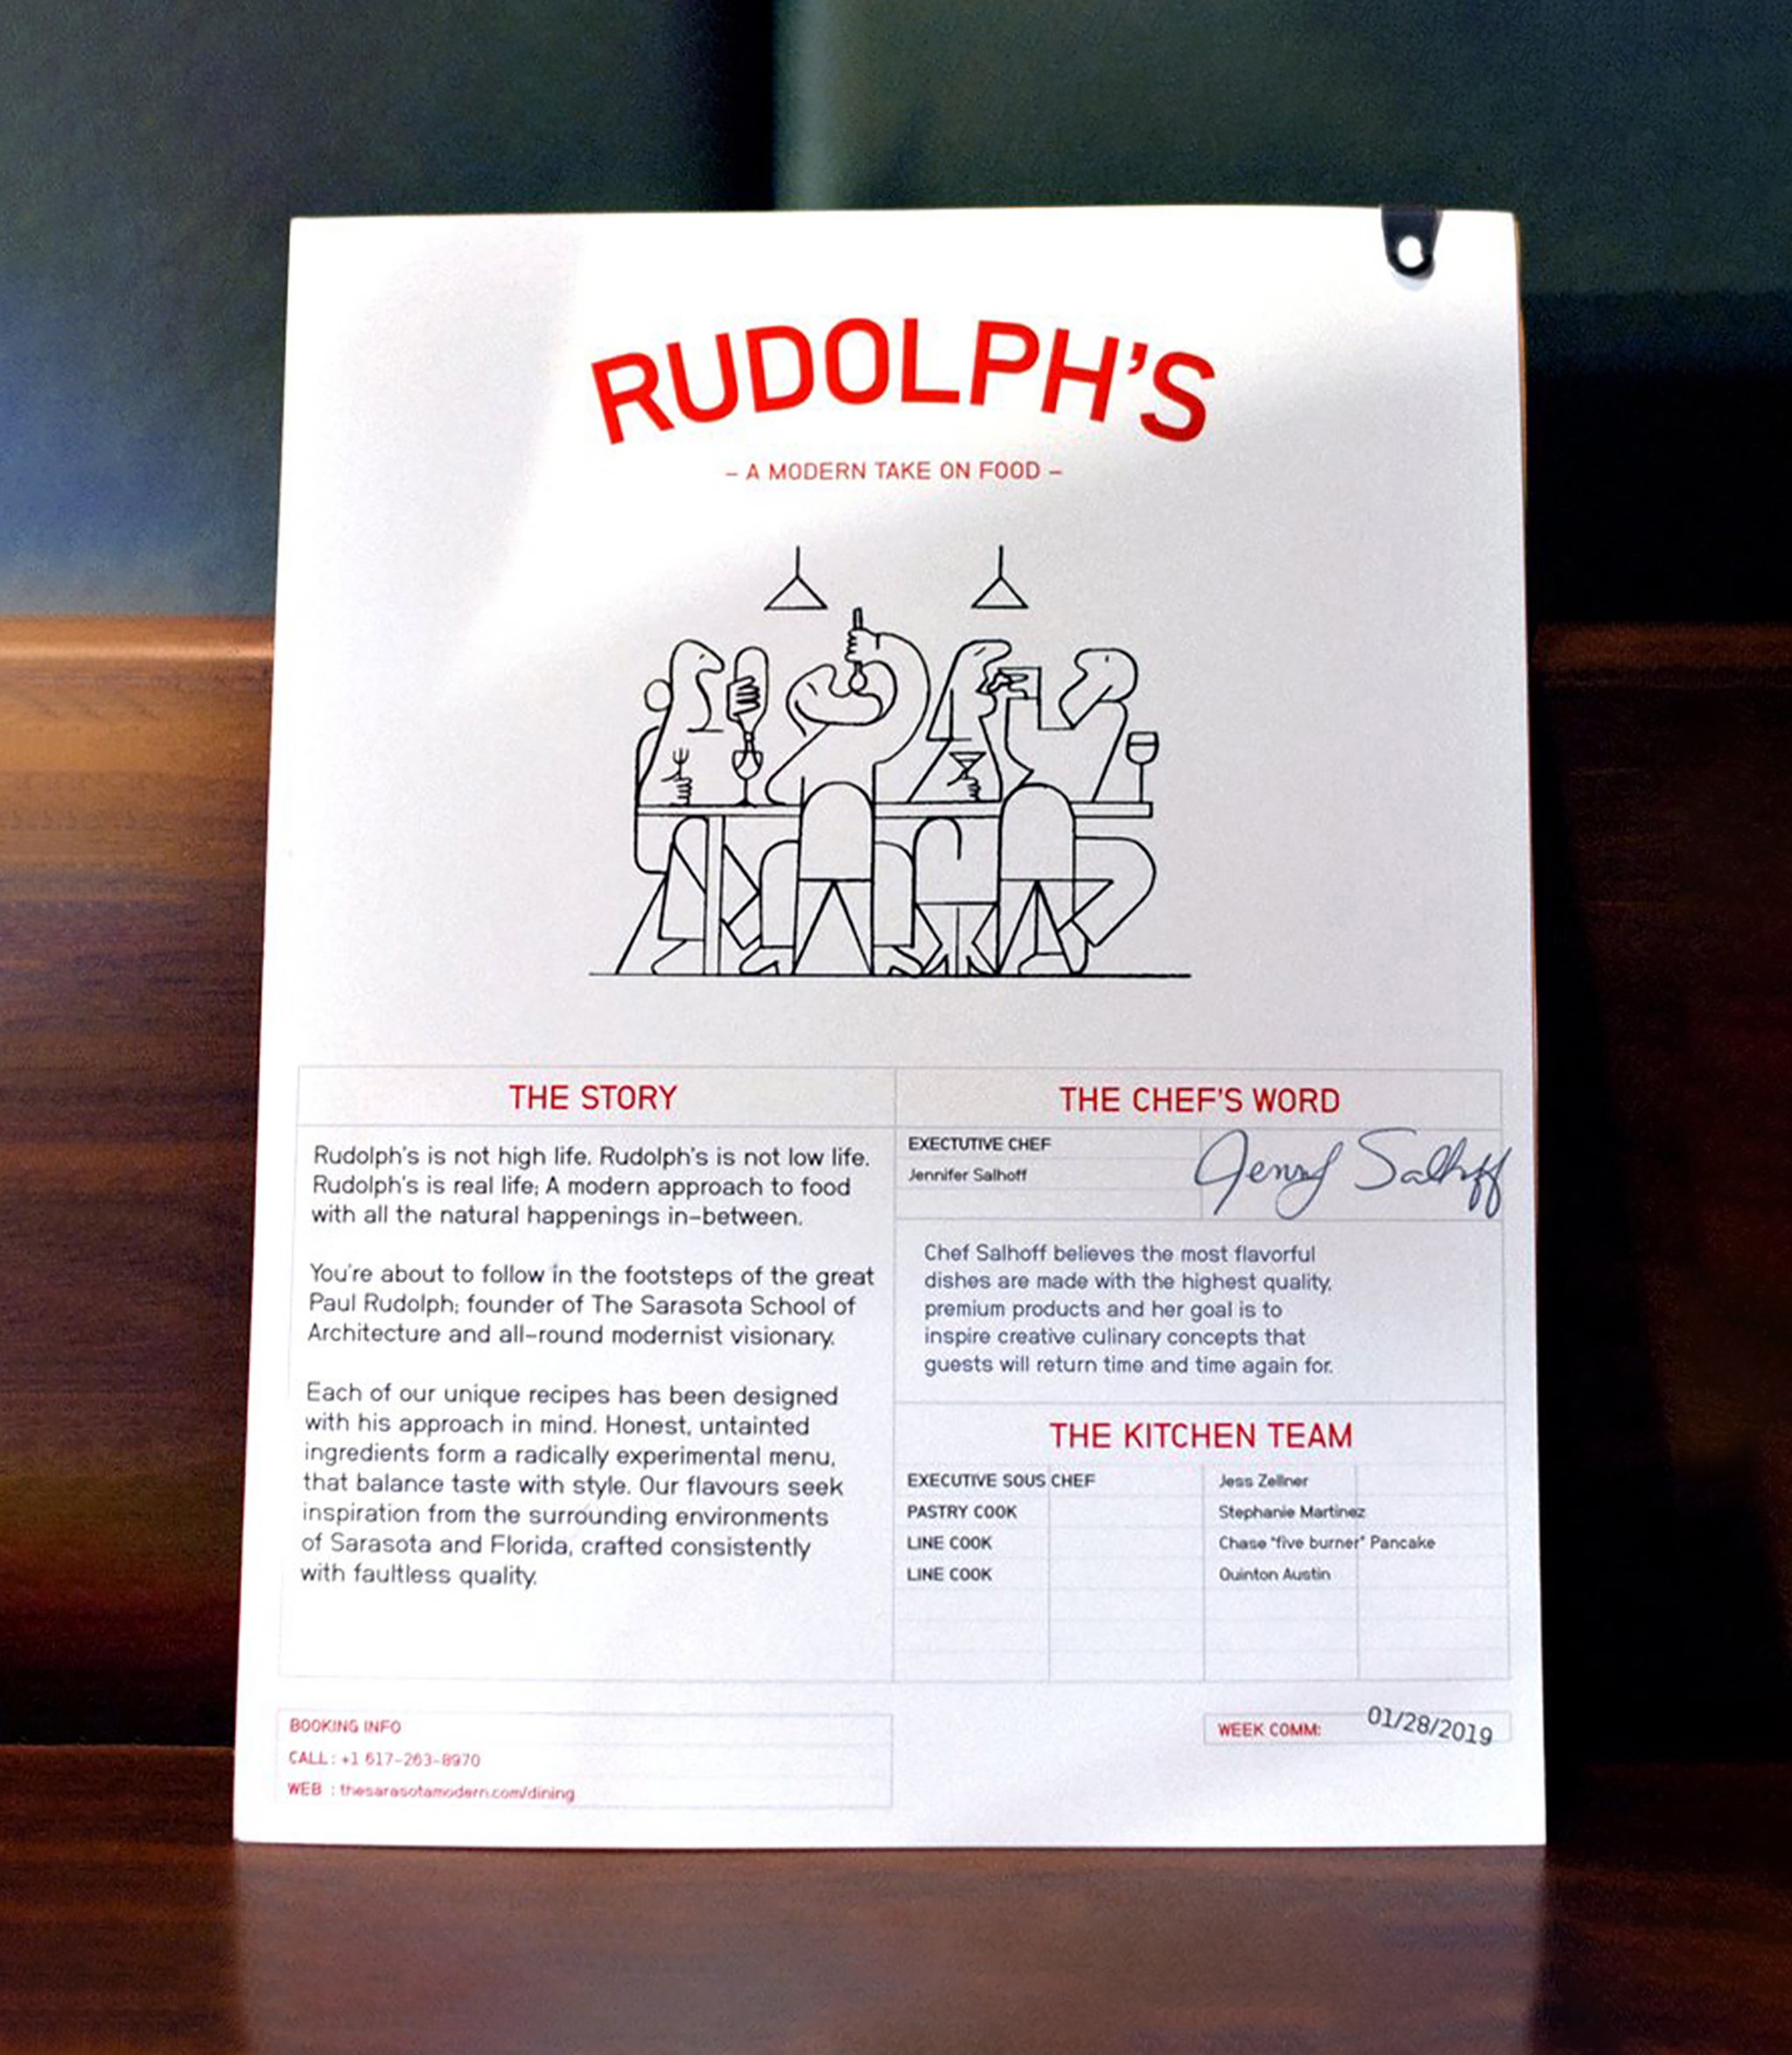 RUDOLPH'S
– A MODERN TAKE ON FOOD –
THE STORY
Rudolph's is not high life. Rudolph's is not low life.
Rudolph's is real life; A modern approach to food
with all the natural happenings in-between.
You're about to follow in the footsteps of the great
Paul Rudolph; founder of The Sarasota School of
Architecture and all-round modernist visionary.
Each of our unique recipes has been designed
with his approach in mind. Honest, untainted
ingredients form a radically experimental menu,
that balance taste with style. Our flavours seek
inspiration from the surrounding environments
of Sarasota and Florida, crafted consistently
with faultless quality.
THE CHEF'S WORD
EXECTUTIVE CHEF
Jennifer Salhoff
Jenny Salhoff
Chef Salhoff believes the most flavorful
dishes are made with the highest quality,
premium products and her goal is to
inspire creative culinary concepts that
guests will return time and time again for.
THE KITCHEN TEAM
EXECUTIVE SOUS CHEF Jess Zellner
PASTRY COOK Stephanie Martinez
LINE COOK Chase "five burner" Pancake
LINE COOK Quinton Austin
BOOKING INFO
CALL : +1 617-263-8970
WEB : thesarasotamodern.com/dining
WEEK COMM: 01/28/2019